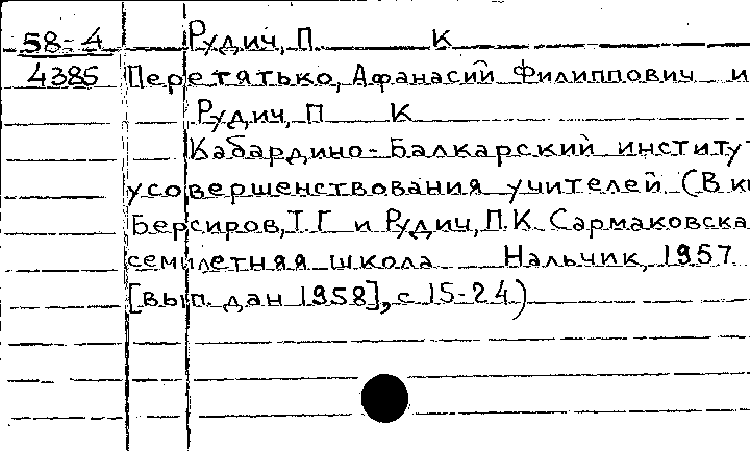 58-4 Рудич, П. К
4385 Перетятько, Афанасий Филиппович и
Рудич, П К
Кабардино-Балкарский институт
усовершенствования учителей. (В кн
Берсиров, Т. Г и Рудич, П. К. Сармаковска
семилетняя школа Нальчик, 1957.
[вып. дан 1958], с 15-24)